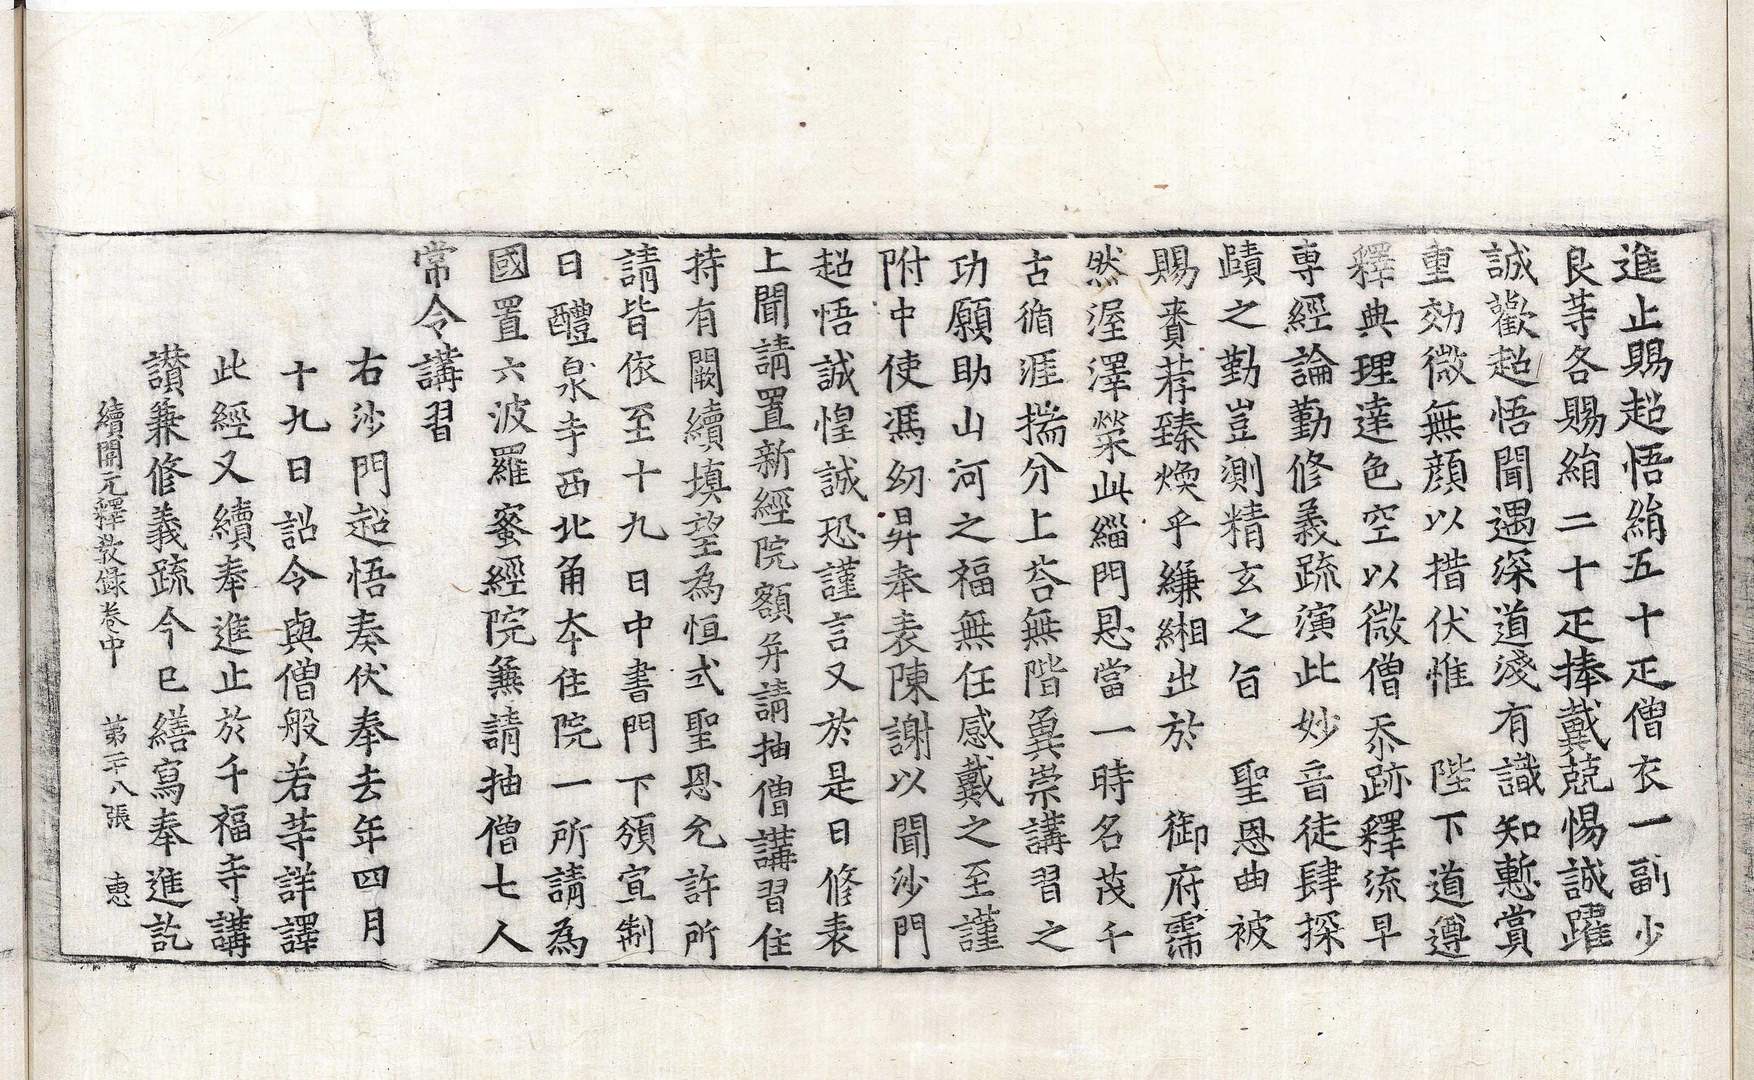 進止賜超悟絹五十疋僧衣一副少
良䒭各賜絹二十疋捧戴兢惕誠躍
誠歡超悟聞遇深道淺有識知慙賞
重効微無顔以措伏惟　陛下道遵
釋典理達色空以微僧忝跡釋流早
専經論勤修義䟽演此妙音徒肆探
賾之勤豈測精玄之旨　聖恩曲被
賜賚荐臻煥乎縑緗出於　御府霈
然渥澤榮此緇門恩當一時名茂千
古循涯揣分上荅無階冀崇講習之
功願助山河之福無任感戴之至謹
附中使馮㓜昇奉表陳謝以聞沙門
超悟誠惶誠恐謹言又於是日修表
上聞請置新經院額并請抽僧講習住
持有闕續填望為恒式聖恩允許所
請皆依至十九日中書門下頒宣制
日醴泉寺西北角夲住院一所請為
國置六波羅蜜經院兼請抽僧七人
常令講習
右沙門超悟奏伏奉去年四月
十九日詔令與僧般若䒭詳譯
此經又續奉進止於千福寺講
讃兼修義䟽今已繕寫奉進訖
續開元釋教錄卷中　第二十八張　惠